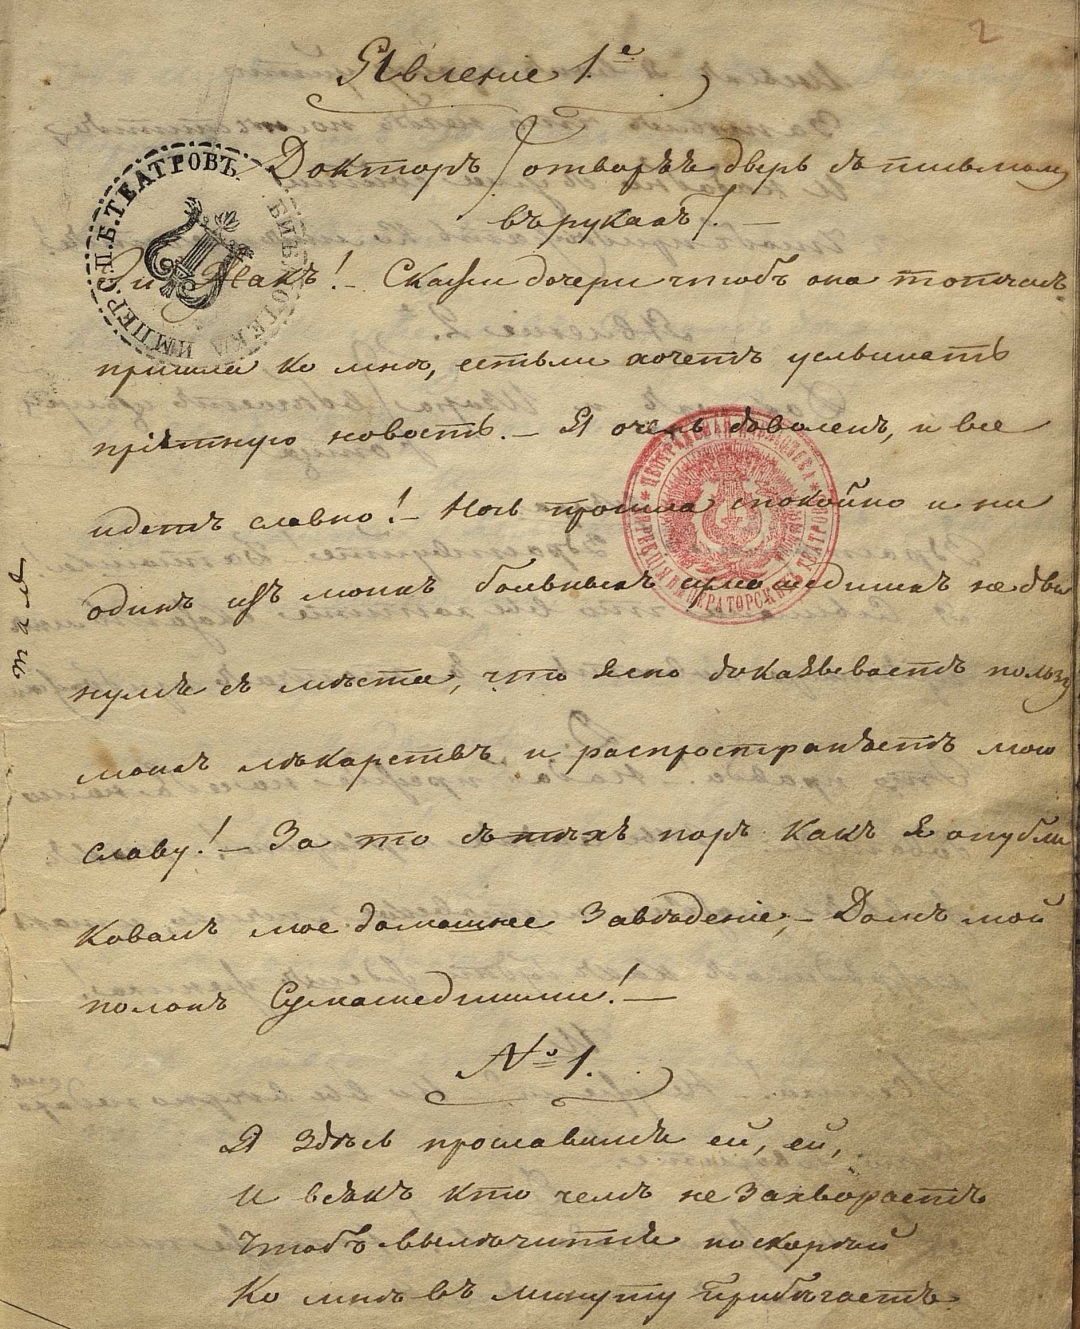 2
Явленіе 1.е
Докторъ /отворѣѣ дверь съ письмомъ
въ рукахъ/. —
Жакъ! — Скажи дочери чтобъ она тотчасъ
пришла ко мнѣ, естьли хочетъ услышать
пріятную новость. — Я очень доволенъ, и все
идетъ славно! — Ночь прошла спокойно и ни
одинъ изъ моихъ больныхъ сумашедшихъ не дви
нулся съ мѣста, что Ясно доказываетъ пользу
моихъ лѣкарствъ и распространяетъ мою
славу! — За то съ тѣхъ поръ какъ Я опубли
ковалъ мое домашнее Заведеніе, — Домъ мой
полонъ Сумашедшими! —
№ 1.
Я Здѣсь прославился ей, ей,
И всякъ кто чемъ не Захвораетъ
Чтобъ вылѣчиться поскорѣй
Ко мнѣ въ минуту Прибѣгаетъ.
БИБЛІОТЕКА ИМПЕР. С.П.Б. ТЕАТРОВЪ.
ЦЕНТРАЛЬНАЯ БИБЛІОТЕКА ДИРЕКЦІИ ИМПЕРАТОРСКИХЪ ТЕАТРОВЪ